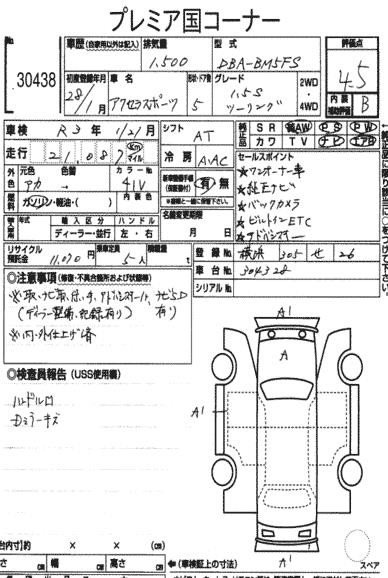 プレミア国コーナー
No.
30438
車歴 (自家用以外は記入)
排気量
型式
評価点
1,500
DBA-BM5FS
4.5
初度登録年月
車名
形状・ドア数
グレード
2WD
4WD
28/1月
アクセラスポーツ
5
1.5S
ツーリング
内装
補助評価
B
車検
R3年 1/21月
シフト
AT
純正品
SR
AW
PS
PW
カワ
TV
ナビ
エアB
走行
21,087
km
マイル
冷房
AAC
セールスポイント
★ワンオーナー車
★純正ナビ
★バックカメラ
★ビルトインETC
★アドバンスキー
外色
元色
色替
カラーNo.
アカ
41V
新車整備手帳
(保証書付)
有・無
燃料
ガソリン・軽油・( )
名義変更期限
月 日
輸入車
年式
輸入区分
ハンドル
ディーラー・並行
左・右
リサイクル預託金
11,070円
乗車定員
5人
積載量
t
登録No.
横浜 305 せ 26
車台No.
304328
シリアルNo.
◎注意事項 (修復・不具合箇所および状態等)
※取、ナビ革、保、キ、アドバンスキー1ケ、ナビSD有り
(ディーラー整備、記録有り)
※内・外仕上げ済
◎検査員報告 (USS使用欄)
ハンドルロ
Dミラーキズ
A1
A
A1
A1
スペア
cm
幅
cm
高さ
cm
←(車検証上の寸法)